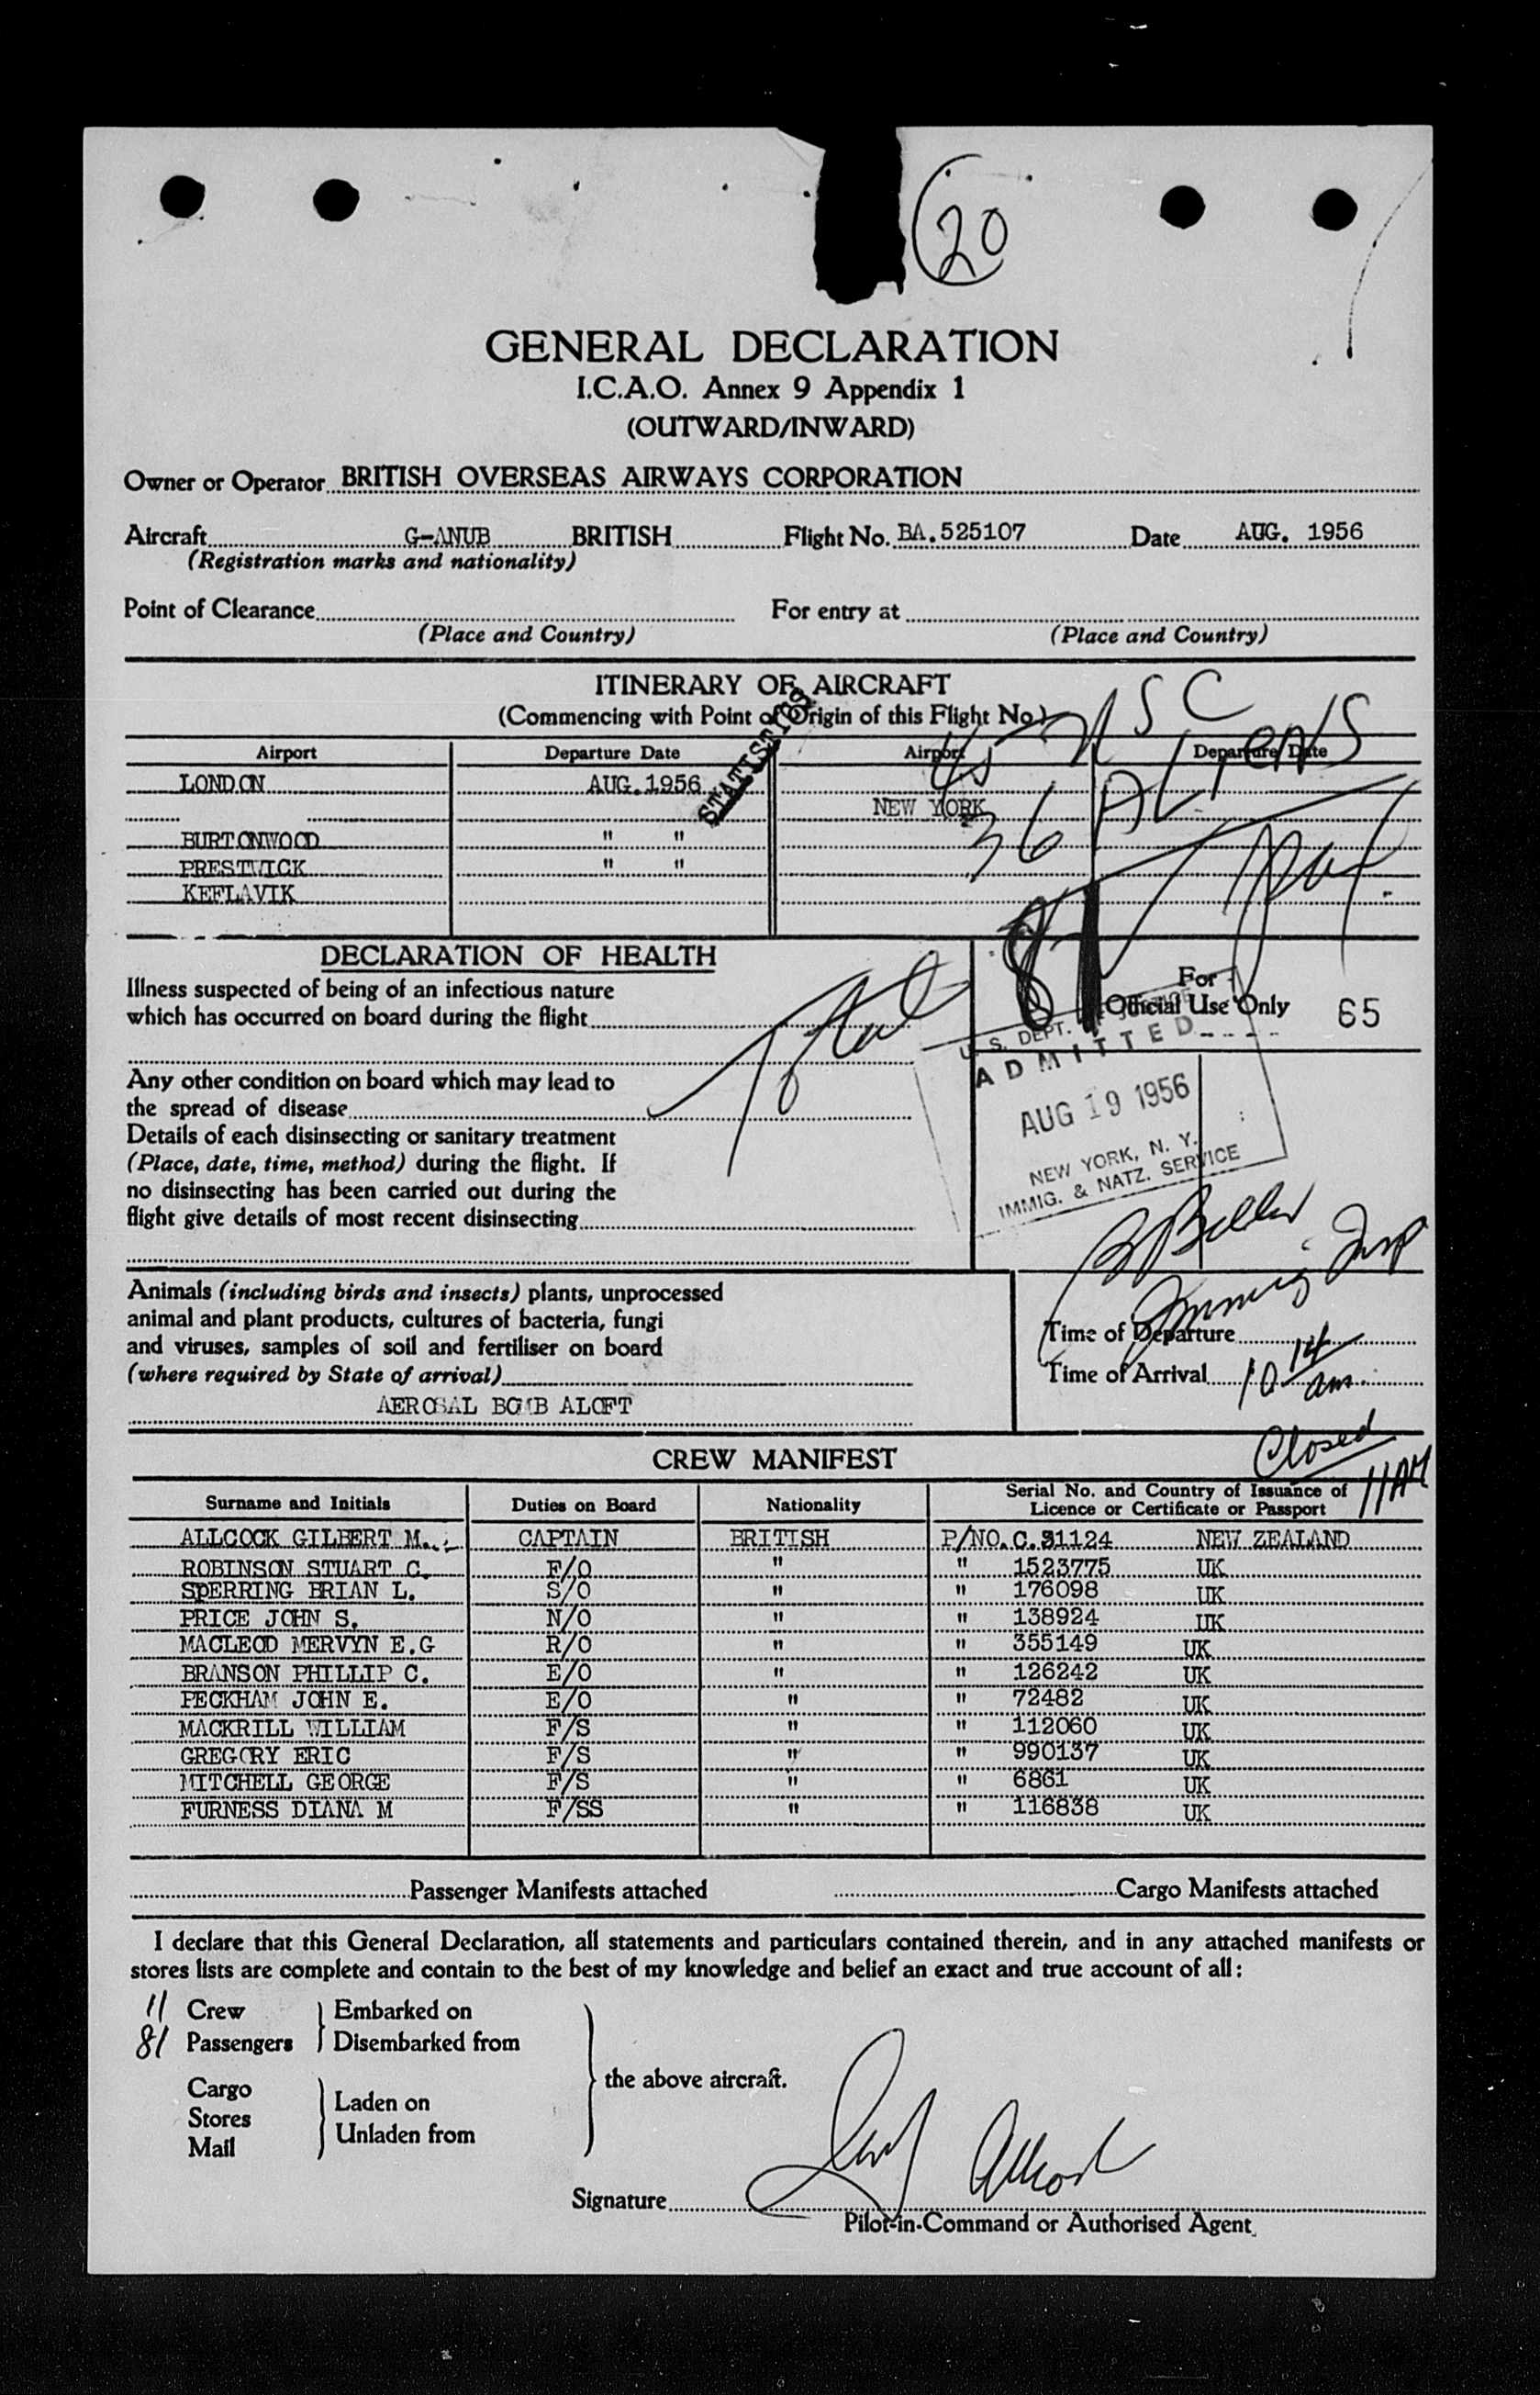 20
GENERAL DECLARATION
I.C.A.O. Annex 9 Appendix 1
(OUTWARD/INWARD)
Owner or Operator BRITISH OVERSEAS AIRWAYS CORPORATION
Aircraft G-ANUB BRITISH Flight No. BA.525107 Date AUG. 1956
(Registration marks and nationality)
Point of Clearance For entry at
(Place and Country) (Place and Country)
ITINERARY OF AIRCRAFT
(Commencing with Point of Origin of this Flight No.)
45 USC
Airport Departure Date Airport Departure Date
LONDON AUG. 1956 STATISTICS
NEW YORK 36 ALiens
BURTONWOOD " "
PRESTWICK " "
KEFLAVIK
81
DECLARATION OF HEALTH
Illness suspected of being of an infectious nature
which has occurred on board during the flight
Total
For
Official Use Only 65
Any other condition on board which may lead to
the spread of disease
Details of each disinsecting or sanitary treatment
(Place, date, time, method) during the flight. If
no disinsecting has been carried out during the
flight give details of most recent disinsecting
U. S. DEPT. OF JUSTICE
ADMITTED
AUG 19 1956
NEW YORK, N. Y.
IMMIG. & NATZ. SERVICE
Immig. Insp
Animals (including birds and insects) plants, unprocessed
animal and plant products, cultures of bacteria, fungi
and viruses, samples of soil and fertiliser on board
(where required by State of arrival)
AEROSAL BOMB ALOFT
Time of Departure
Time of Arrival 10 14 am
Closed
11 AM
CREW MANIFEST
Surname and Initials Duties on Board Nationality Serial No. and Country of Issuance of Licence or Certificate or Passport
ALLCOCK GILBERT M. CAPTAIN BRITISH P/NO. C.31124 NEW ZEALAND
ROBINSON STUART C. F/O " " 1523775 UK
SPERRING BRIAN L. S/O " " 176098 UK
PRICE JOHN S. N/O " " 138924 UK
MACLEOD MERVYN E.G R/O " " 355149 UK
BRANSON PHILLIP C. E/O " " 126242 UK
PECKHAM JOHN E. E/O " " 72482 UK
MACKRILL WILLIAM F/S " " 112060 UK
GREGORY ERIC F/S " " 990137 UK
MITCHELL GEORGE F/S " " 6861 UK
FURNESS DIANA M F/SS " " 116838 UK
Passenger Manifests attached Cargo Manifests attached
I declare that this General Declaration, all statements and particulars contained therein, and in any attached manifests or
stores lists are complete and contain to the best of my knowledge and belief an exact and true account of all:
11 Crew Embarked on
81 Passengers Disembarked from
the above aircraft.
Cargo
Stores
Mail
Laden on
Unladen from
Signature
Pilot-in-Command or Authorised Agent.